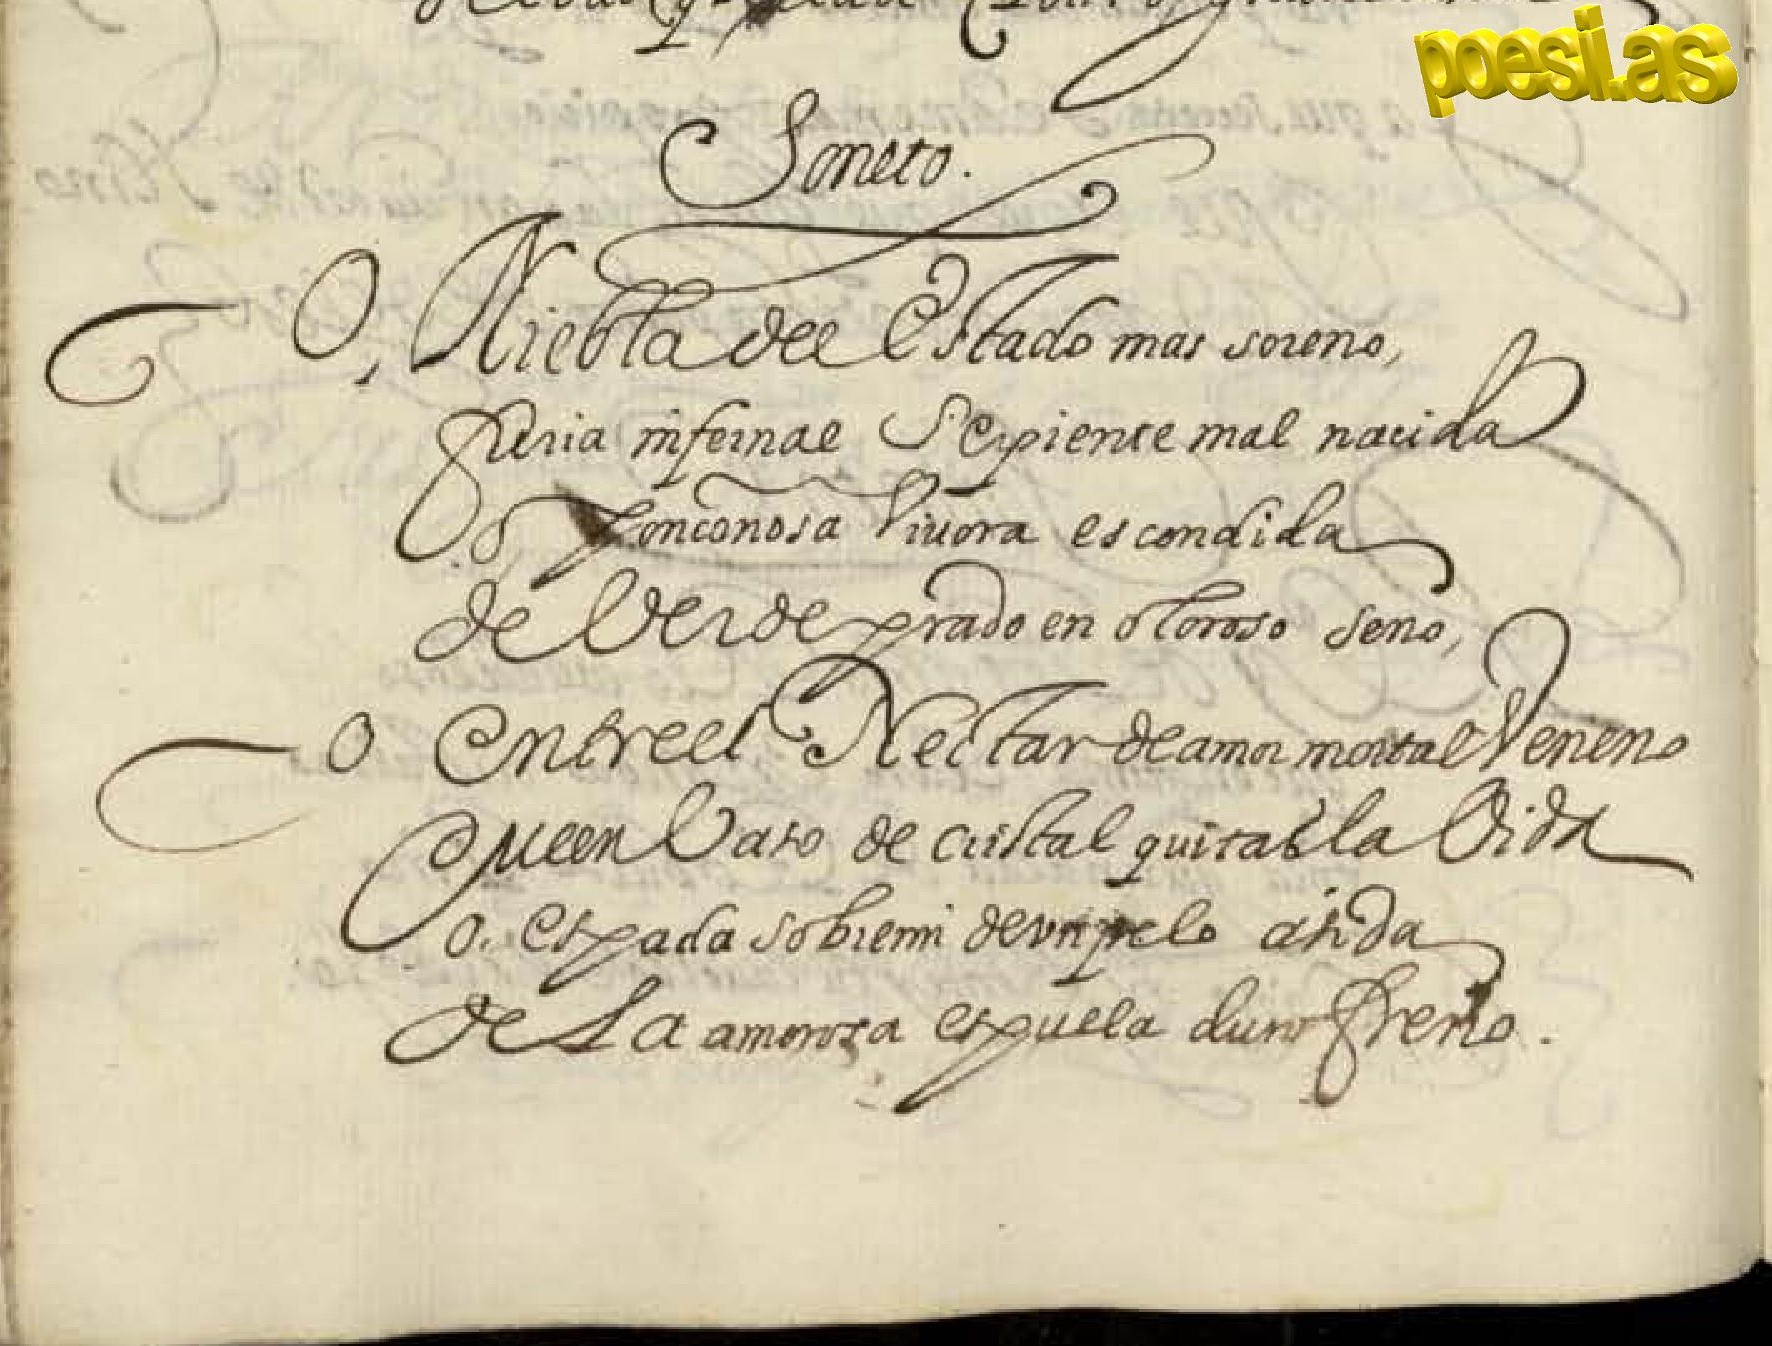 poesi.as
Soneto.
O, Niebla del Estado mas sereno,
furia infernal Serpiente mal nacida
o Ponçonosa Viuora escondida
de Verde prado en oloroso seno,
O entre el Nectar de amor mortal Veneno
Que en Vaso de cristal quitas la Vida
o. espada sobremi de vn pelo asida
de La amorosa espuela duro freno.